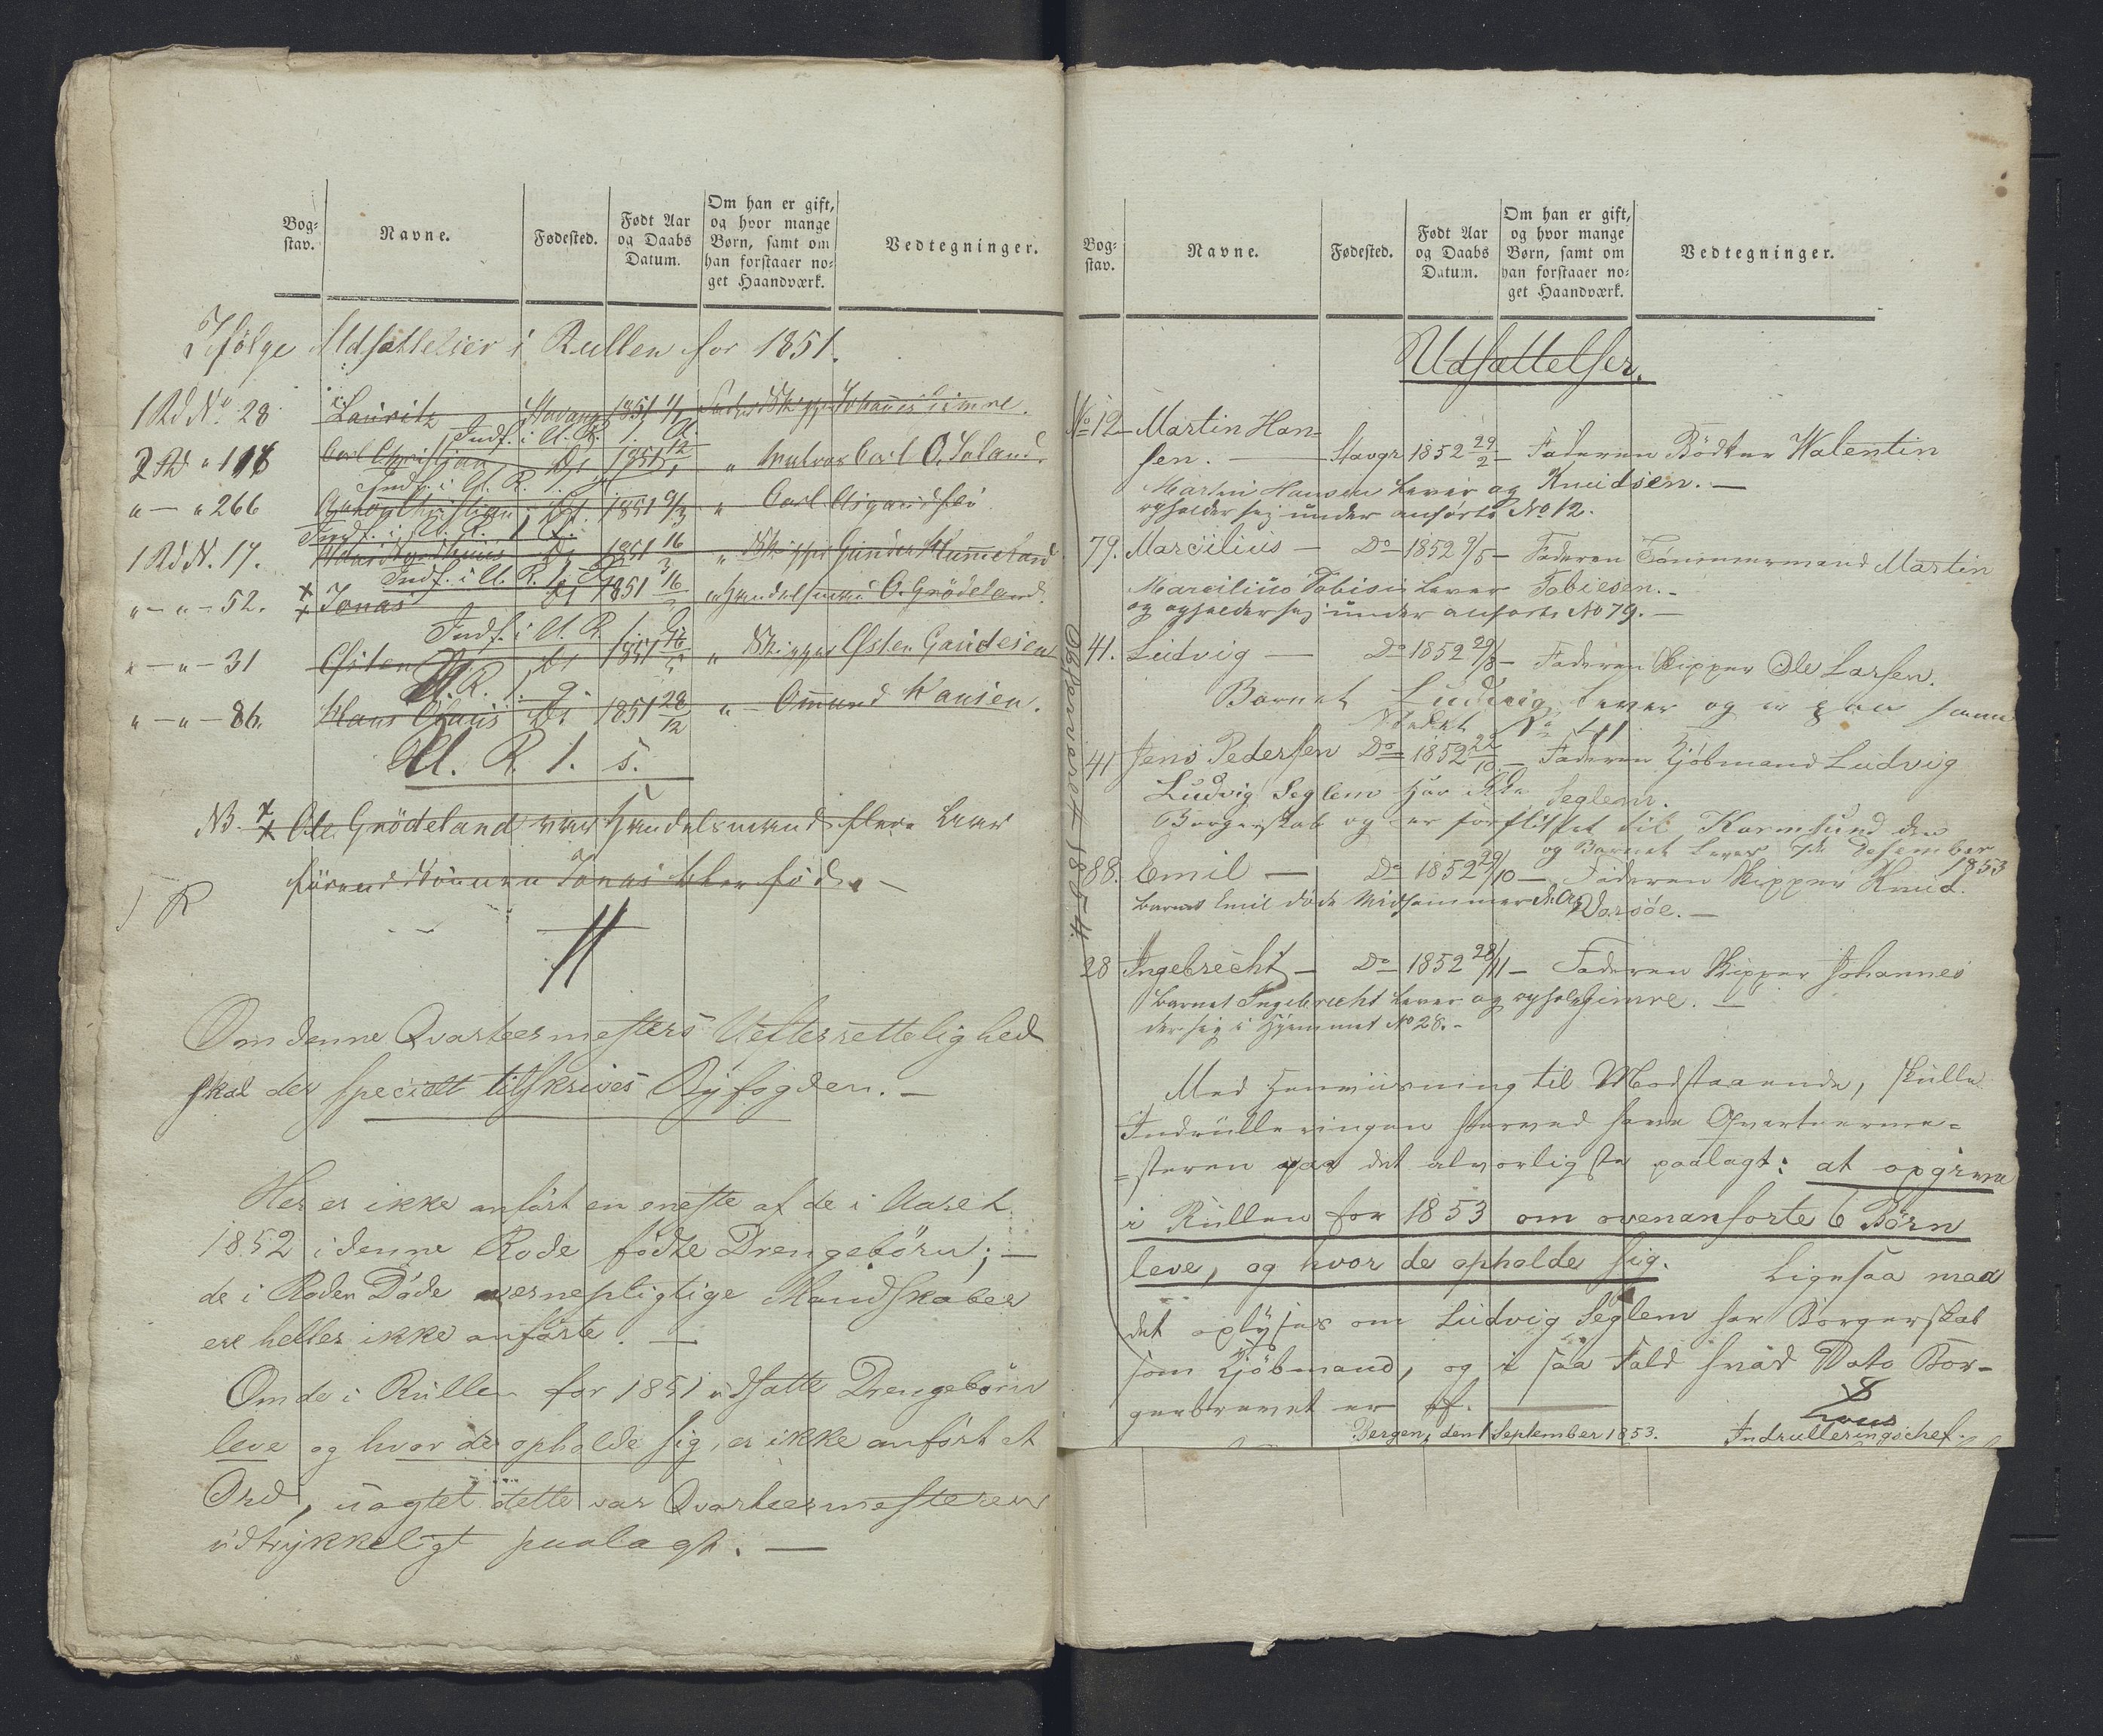 Bog-
stav.
Navne.
Fødested.
Født Aar
og Daabs
Datum.
Om han er gift,
og hvor mange
Børn, samt om
han forstaaer no-
get Haandværk.
Vedtegninger.
Ifølge Udsættelser i Rullen for 1851.
1 Rd No 28 Lauritz Stavang 1851 Skipper Johannes Gimre.
Indf. i U. R.
2 Rd " 118 Carl Christian Do 1851 " Carl O. Soland.
Indf. i U. R. 1.
" — " 266 Christian Do 1851 " Carl
Indf. i U. R. 1.
1 Rd N. 17. Do 1851 16 " Skipper Gunder Hummeland
Indf. i U. R. 1.
" — " — 52. Jonas Do 1851 16 " Handelsmand O. Grödeland.
Indf. i U. R. 1.
" — " — 31 Østen Do 1851 " Skipper Østen Gaudesen
U. R. 1. 9.
" — " — 86. Hans Do 1851 28/12 " Ommund Hansen.
U. R. 1. 5.
NB. Ole Grödeland var Handelsmand flere Aar
förend Sönnen Jonas blev föd. —
R
Om denne Qvarteermesters Uefterrettelighed
skal der specielt tilskrives Byfogden. —
Her er ikke anfört en eneste af de i Aaret
1852 i denne Rode födte Drengebörn; —
de i Roden Döde vernepligtige Mandskaber
ere heller ikke anförte. —
Om de i Rullen for 1851 udsatte Drengebörn
leve og hvor de opholde sig, er ikke anfört et
Ord, uagtet dette var Qvarteermesteren
udtrykkeligt paalagt. —
Bog-
stav.
Navne.
Fødested.
Født Aar
og Daabs
Datum.
Om han er gift,
og hvor mange
Børn, samt om
han forstaaer no-
get Haandværk.
Vedtegninger.
Udsættelser.
No 12 Martin Han-
sen. — Stavgr 1852 29/2 — Faderen Bödker Valentin
Knudsen. —
Martin Hansen lever og
opholder sig under anförte No 12.
79. Marsilius — Do 1852 9/5 — Faderen Tömmermand Martin
Tobiesen. —
Marcilius Tobisen lever
og opholder sig under anförte No 79. —
41. Ludvig — Do 1852 29/8 — Faderen Skipper Ole Larsen.
Barnet Ludvig lever og er paa samme
Stedet No 41
41 Jens Pedersen Do 1852 22/10 — Faderen Kjöbmand Ludvig
Seglem.
Ludvig Seglem har ikke
Borgerskab og er forflöttet til Karmsund den
og Barnet lever 7de Desember
1853
88. Emil — Do 1852 29/10 — Faderen Skipper Knud
Barnet Emil döde Midsommer d. A. Varsöe. —
28 Ingebrecht — Do 1852 28/11 — Faderen Skipper Johannes
Gimre. —
Barnet Ingebrecht lever og ophol-
der sig i Hjemmet No 28. —
Med Henviisning til Modstaaende, skulle
Indrulleringen herved have Qvarteerme-
=steren paa det alvorligste paalagt: at opgive
i Rullen for 1853 om ovenanförte 6 Börn
leve, og hvor de opholde sig. Ligesaa maa
det oplyses om Ludvig Seglem har Borgerskab
som Kjöbmand, og i saa Fald hvad Dato Bor-
gerbrevet er af. —
Bergen, den 1 September 1853.
Indrulleringschef.
Besvaret 1854